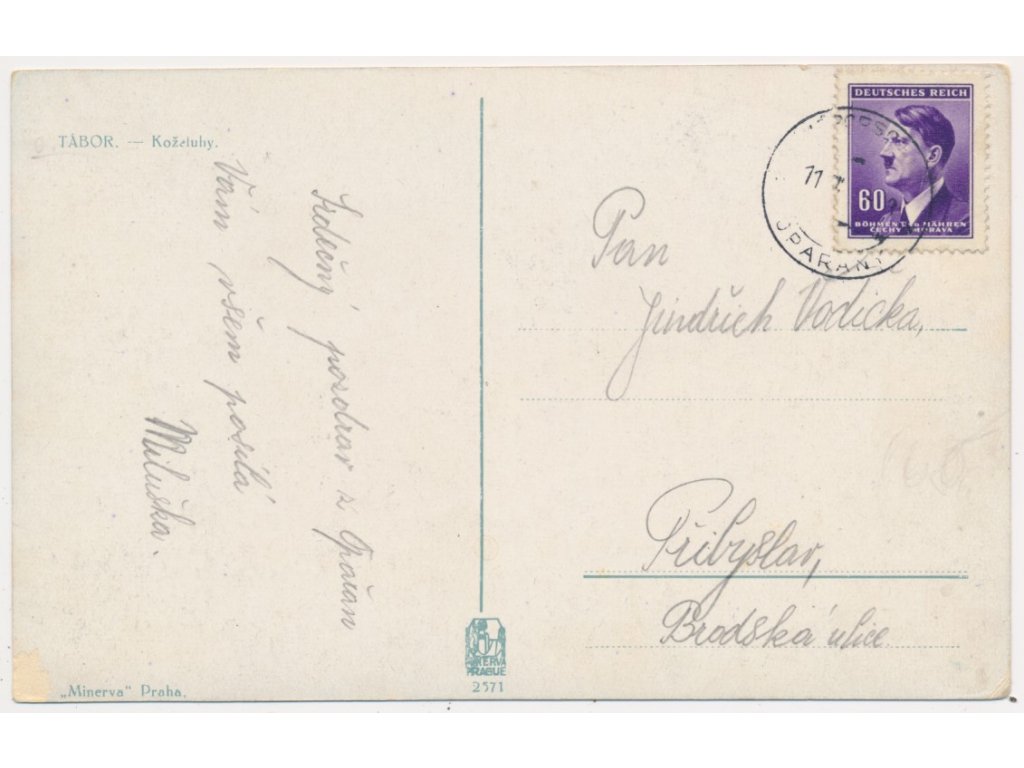 TÁBOR. — Koželuhy.
Srdečný pozdrav z Opařan
Vám všem posílá
Miluška.
"Minerva" Praha.
MINERVA
PRAGUE
2571
DEUTSCHES REICH
60
BÖHMEN U. MÄHREN
ČECHY A MORAVA
11
OPAŘANY
Pan
Jindřich Vodička,
Přibyslav,
Brodská ulice.